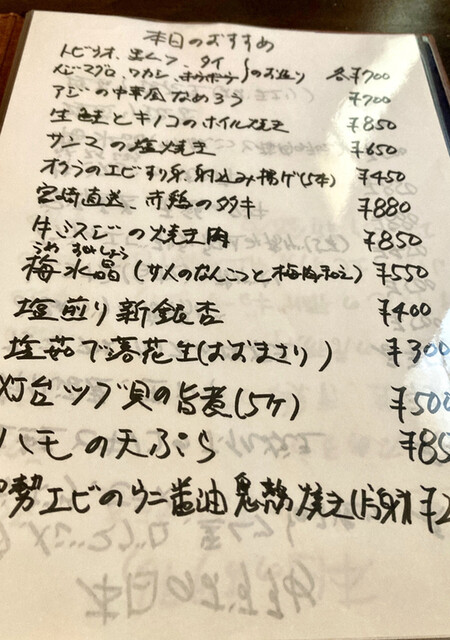 本日のおすすめ
トビウオ、黒ムツ、タイ
メジマグロ、ワカシ、ホウボウ のお造り 各¥700
アジの中華風なめろう ¥700
生鮭とキノコのホイル焼き ¥850
サンマの塩焼き ¥650
オクラのエビすり身射込み揚げ(5本) ¥450
宮崎直送、赤鶏のタタキ ¥880
牛ミスジの焼き肉 ¥850
うめ すいしょう
梅水晶(サメのなんこつと梅肉和え) ¥550
塩煎り新銀杏 ¥400
塩茹で落花生(おおまさり) ¥300
灯台ツブ貝の旨煮(5ケ) ¥500
ハモの天ぷら ¥85
勢エビのウニ醤油鬼殻焼き(片身) ¥2